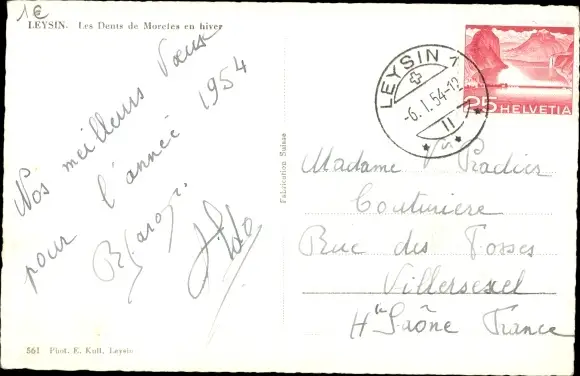 1€
LEYSIN. Les Dents de Morcles en hiver
Nos meilleurs Vœux
pour l'année 1954
Fabrication Suisse
LEYSIN 1
-6.I.54-12
II
25 HELVETIA
Madame Pradier
Couturière
Rue des Fosses
Villersexel
Hte Saône France
561 Phot. E. Kull, Leysin